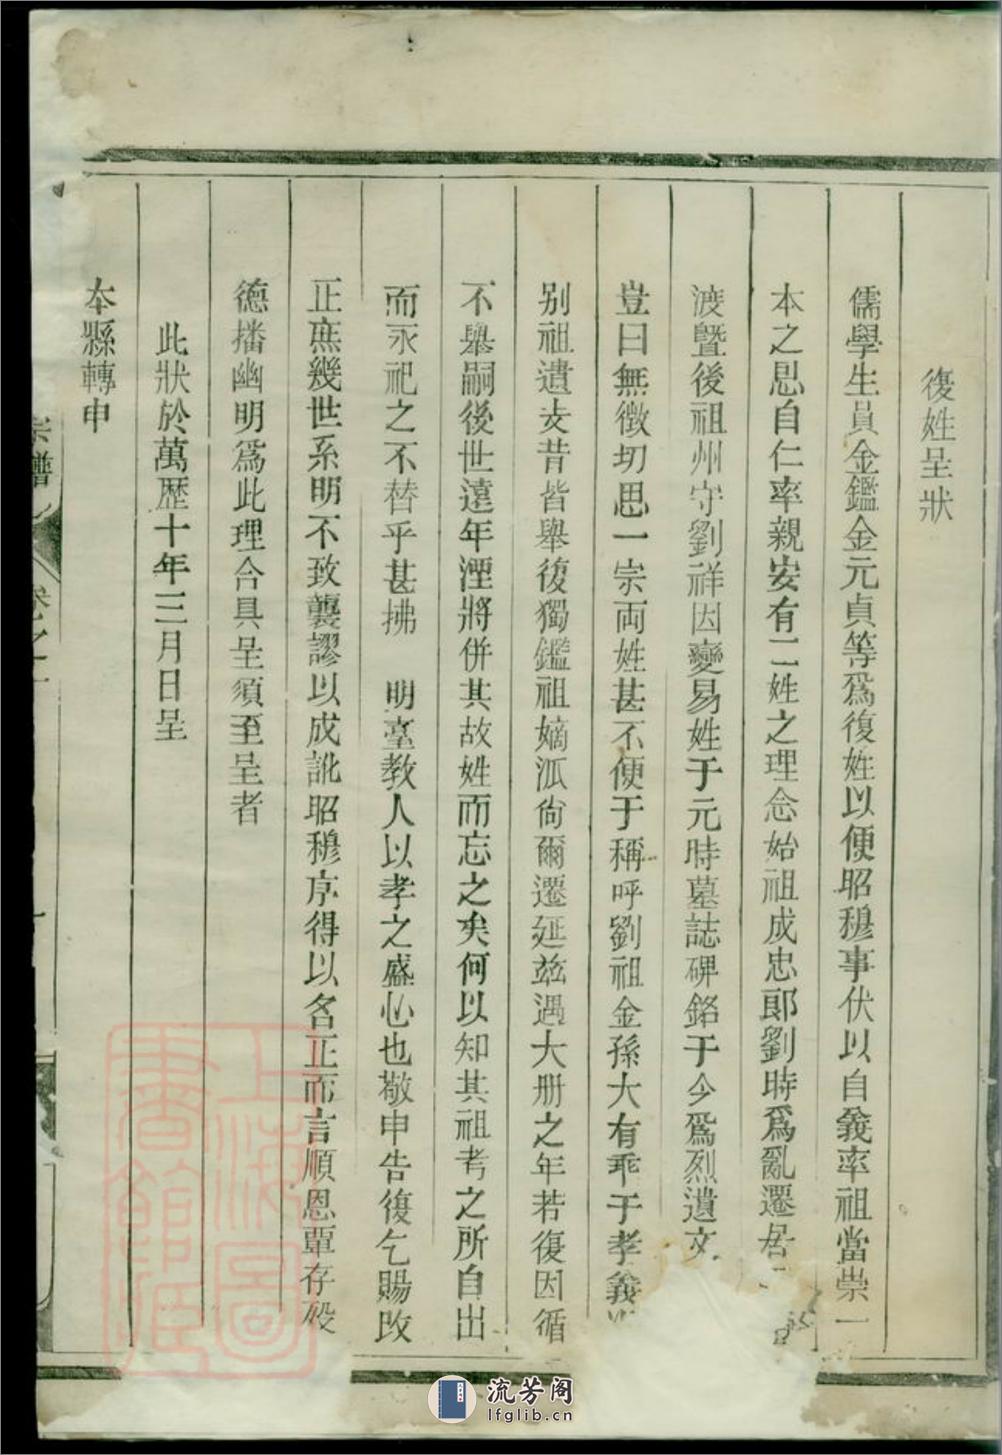 復姓呈狀
儒學生員金鑑金元貞等爲復姓以便昭穆事伏以自義率祖當崇一
本之恩自仁率親安有二姓之理念始祖成忠郎劉時爲亂遷居
波暨後祖州守劉祥因變易姓于元時墓誌碑銘于今爲烈遺文
豈曰無徵切思一宗両姓甚不便于稱呼劉祖金孫大有乖于孝義
别祖遺支昔皆舉復獨鑑祖嫡泒尙爾遷延兹遇大册之年若復因循
不舉嗣後世遠年湮將併其故姓而忘之矣何以知其祖考之所自出
而永祀之不替乎甚拂 明臺教人以孝之盛心也敬申告復乞賜攺
正庶幾世系明不致襲謬以成訛昭穆序得以名正而言順恩覃存殁
德播幽明爲此理合具呈須至呈者
此狀於萬歴十年三月日呈
本縣轉申
宗譜 卷之一
上海圖書館藏
流芳阁
lfglib.cn